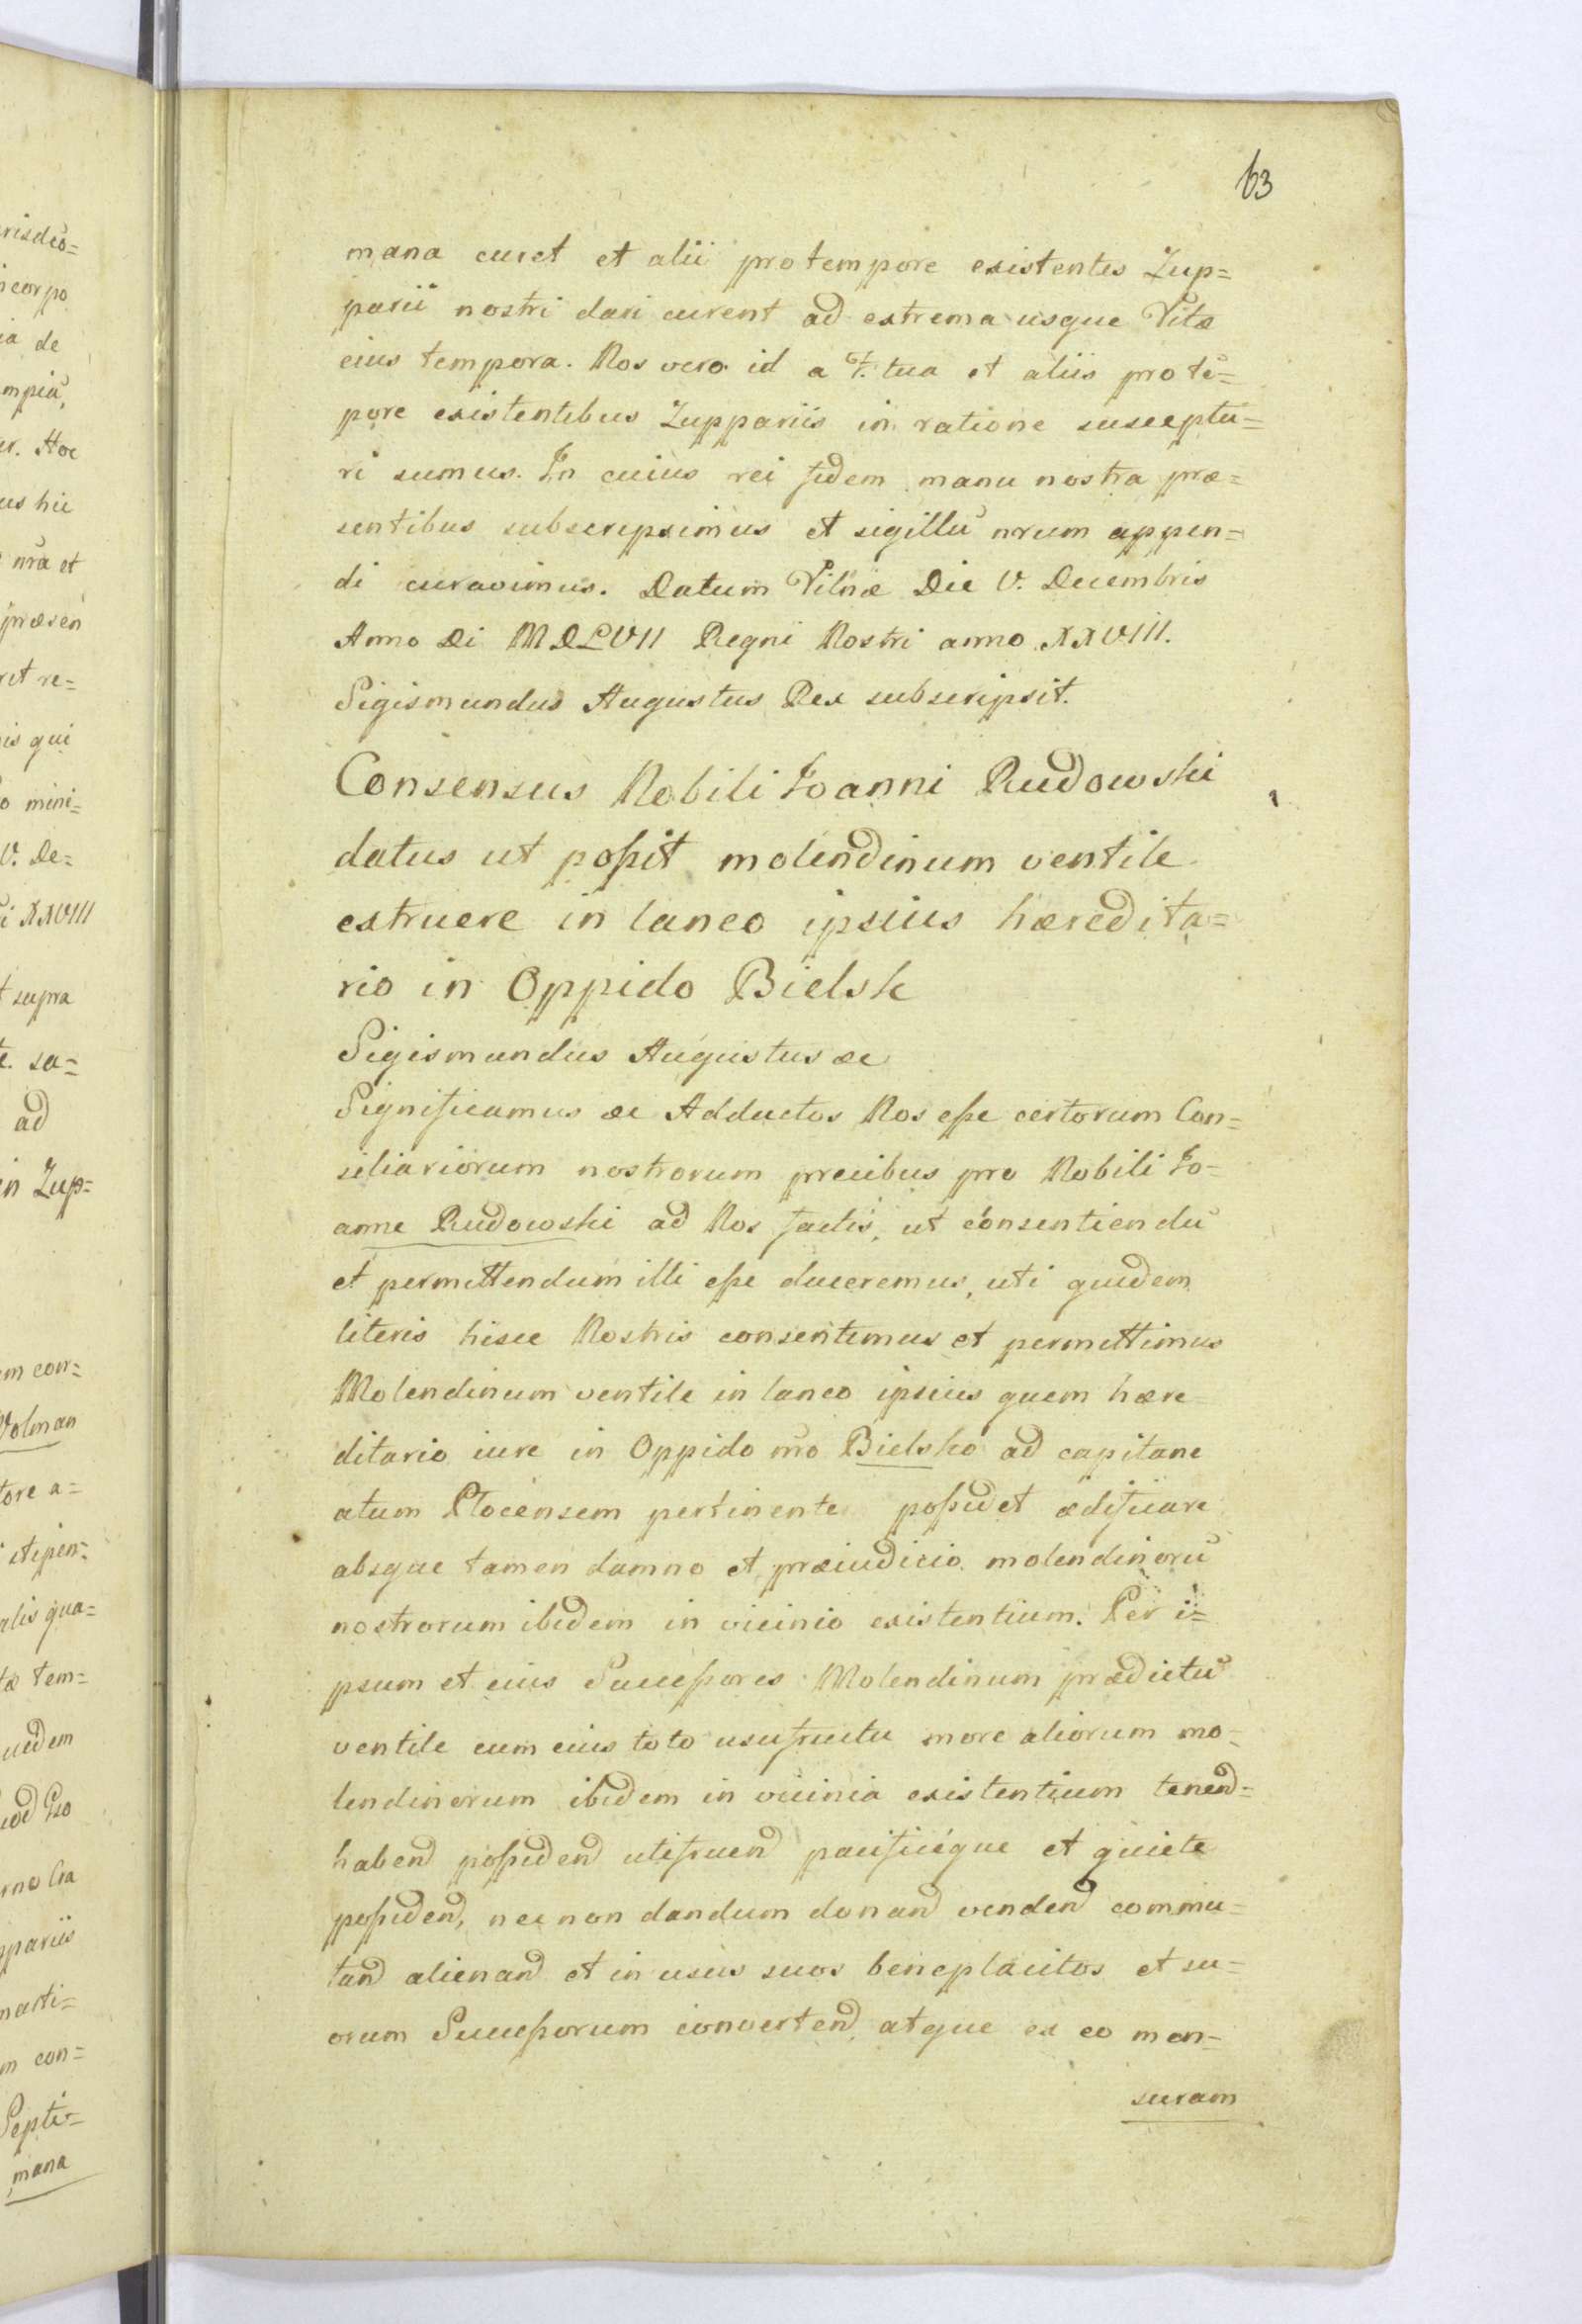 63
mana curet et alii pro tempore existentes Zup=
parii nostri dari curent ad extrema usque Vitæ
eius tempora. Nos vero id a F. tua et aliis pro tē=
pore existentibus Zuppariis in ratione susceptu=
ri sumus. In cuius rei fidem manu nostra præ=
sentibus subscripsimus et sigillū nrum appen=
di curavimus. Datum Vilnæ Die V. Decembris
Anno Di MDLVII Regni Nostri anno XXVIII.
Sigismundus Augustus Rex subscripsit.
Consensus Nobili Joanni Rudowski
datus ut poßit molendinum ventile
extruere in laneo ipsius hæredita=
rio in Oppido Bielsk
Sigismundus Augustus &c
Significamus &c Adductos Nos eße certorum Con=
siliariorum nostrorum precibus pro Nobili Jo=
anne Rudowski ad Nos factis, ut consentiendū
et permittendum illi eße duceremus, uti quidem
literis hisce Nostris consentimus et permittimus
Molendinum ventile in laneo ipsius quem hære
ditario iure in Oppido nro Bielsko ad capitane
atum Plocensem pertinente poßidet ædificare
absque tamen damno et præiudicio molendinorū
nostrorum ibidem in vicinio existentium. Per i=
psum et eius Succeßores Molendinum prædictū
ventile cum eius toto usufructu more aliorum mo=
lendinorum ibidem in vicinia existentium tenend=
habend poßidend utifruend pacificéque et quiete
poßidend, nec non dandum donand vendend commu=
tand alienand et in usus suos beneplacitos et su=
orum Succeßorum convertend, atque ex eo men=
suram
risdiō=
ncorpo
ia de
mpiū,
er. Hoc
us hic
nra et
præsen
ret re=
is qui
o mini=
V. De=
i XXVIII
t supra
e. sa=
ad
in Zup=
em con=
Volman
tore a=
stipen=
alis qua=
tæ tem=
uidem
uod
pariis
marti=
m con=
Septi=
mana